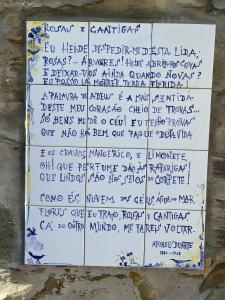 ROSAS E CANTIGAS
EU HEI DE DESPEDIR-ME DESTA LIDA,
ROSAS? - ÁRVORES! HEI DE ABRIR-VOS COVAS
E DEIXAR-VOS AINDA QUANDO NOVAS?
EU POSSO LÁ MORRER, TERRA FLORIDA!
A PALAVRA DE ADEUS É A MAIS SENTIDA
DESTE MEU CORAÇÃO CHEIO DE TROVAS...
SÓ BENS ME DÊ O CÉU! EU TENHO PROVAS
QUE NÃO HÁ BEM QUE PAGUE DESTA VIDA
E OS CRAVOS, MANGERICO, E LIMONETE,
OH! QUE PERFUME DÃO ÀS RAPARIGAS!
QUE LINDOS SÃO NOS SEIOS DO CORPETE!
COMO ÉS, NUVEM DOS CÉUS, ÁGUA DO MAR,
FLORES QUE EU TRATO, ROSAS E CANTIGAS,
CÁ DO OUTRO MUNDO, ME FAREIS VOLTAR.
AFONSO DUARTE